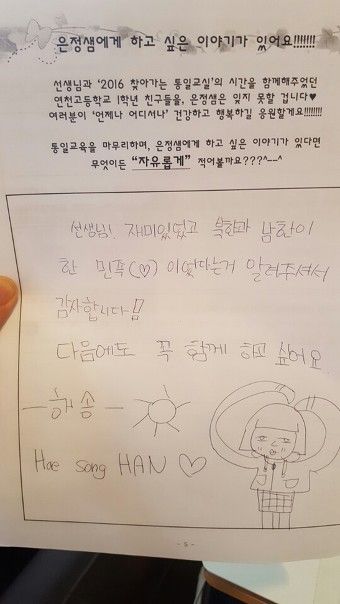 은정샘에게 하고 싶은 이야기가 있어요!!!!!!!
선생님과 '2016 찾아가는 통일교실'의 시간을 함께해주었던
연천고등학교 1학년 친구들을, 은정샘은 잊지 못할 겁니다♥
여러분이 '언제나 어디서나' 건강하고 행복하길 응원할게요!!!!!!!!
통일교육을 마무리하며, 은정샘에게 하고 싶은 이야기가 있다면
무엇이든 "자유롭게" 적어볼까요???^--^
선생님! 재미있었고 북한과 남한이
한 민족(♡) 이었다는거 알려주셔서
감사합니다!!
다음에도 꼭 함께 하고 싶어요
-해솔-
Hae song HAN ♡
- 5 -